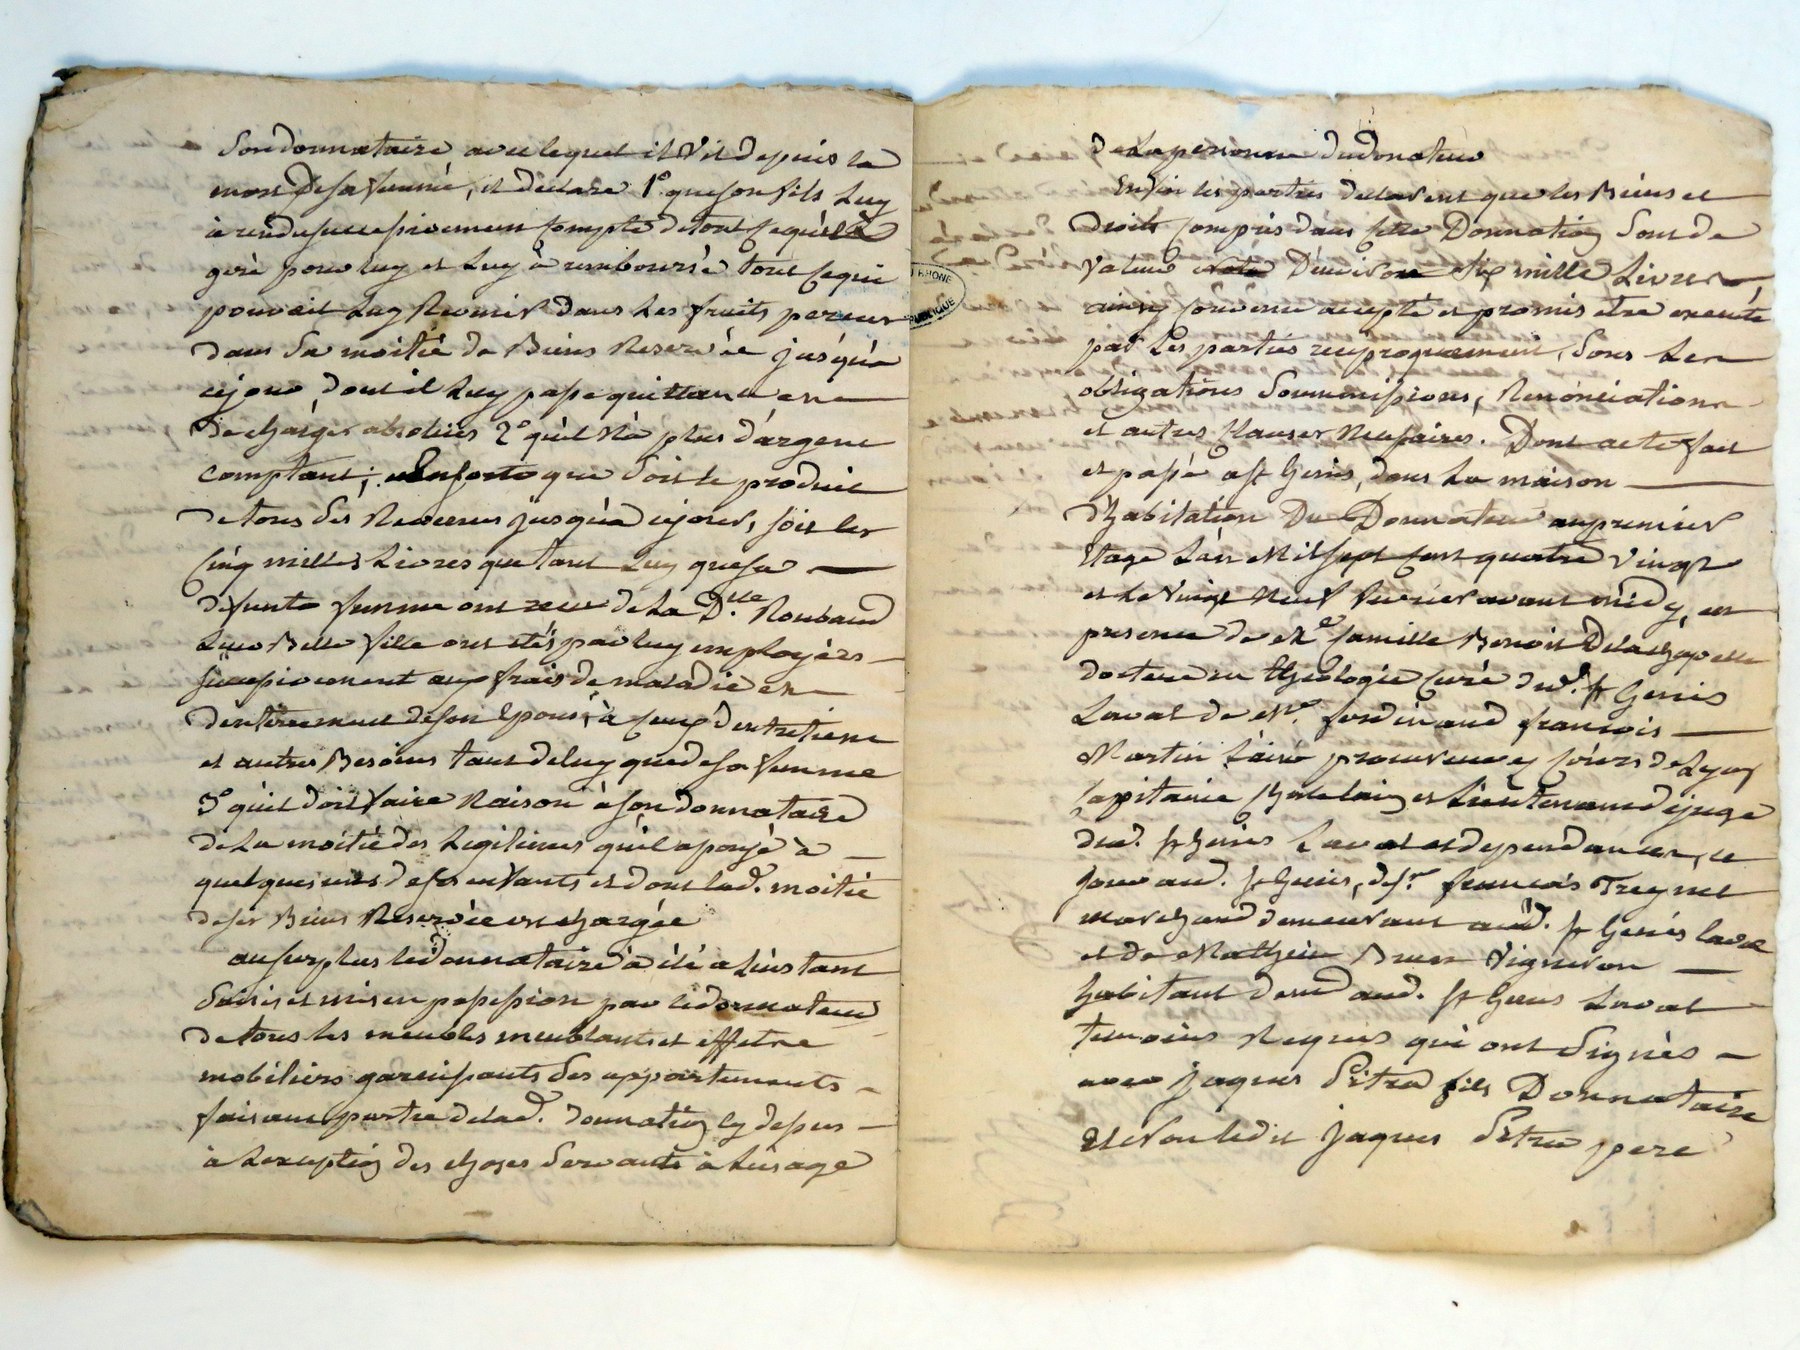 Son donnataire avec lequel il Vit depuis la
mort De sa femme, et declare 1° que son fils Luy
à rendu successivement Compte de tout Ce qu'il à
geré pour luy et Luy à remboursé tout Ce qui
pouvait Luy Revenir dans Les fruits percus
dans La moitié de Biens Reservée jusqu'à
cejour, dont il Luy passe quittance et
decharges absolües 2° qu'il N'à plus d'argent
comptant; Ensorte que Soit le produit
de tous Ses Revenus jusqu'à cejour, soit les
Cinq milles Livres que tant Luy que sa
defunte femme ont recu de La D.lle Roubaud
Belle fille ont etés par luy employées
successivement aux frais de maladie et
d'enterrement de son Epouse, à Ceux d'entretient
et autres Besoins tant de luy que de sa femme
3° qu'il doit faire Raison à son donnataire
de La moitié des Legitimes qu'il a payé à
quelques uns de ses enfants et dont lad. moitié
de ses Biens Reservée est chargée
au surplus led donnataire à été a L'instant
Saisi et mis en possession par led donnateur
de tous les meubles meublants et effets
mobiliers garnissants Les appartements
faisant partie de lad. donnation cy dessus
à L'exception des choses Servants à L'usage
de La personne du donateur
Enfin les parties declarent que les Biens et
droits Compris dans Cette Donnation Sont de
Valeur D'environ Six mille Livres,
ainsy convenu accepté et promis etre executé
par Les parties reciproquement, Sous Les
obligations Soummissions, Renonciations
et autres Clauses Necessaires. Dont acte fait
et passé a St Genis, dans La maison
d'habitation Du Donnateur au premier
Etage L'an Mil sept Cent quatre vingt
et Le Vingt Neuf fevrier avant midy, en
presence de Me Camille Benoit Delachapelle
docteur en theologie Curé dud. St Genis
Laval de Me. ferdinand francois
Martin L'ainé procureur ez Cours de Lyon
Capitaine Chatelain et Lieutenant de juge
dud. St Genis Laval et dependances, de
aud. St Genis, de Sr. francois Treynet
marchand demeurant aud. St Genis laval
et de Mathieu Brun Vigneron
habitant dud aud. St Genis Laval
temoins Requis qui ont Signés
avec jaques Pitra fils Donnataire
et Non ledit jaques Pitra pere
RHONE